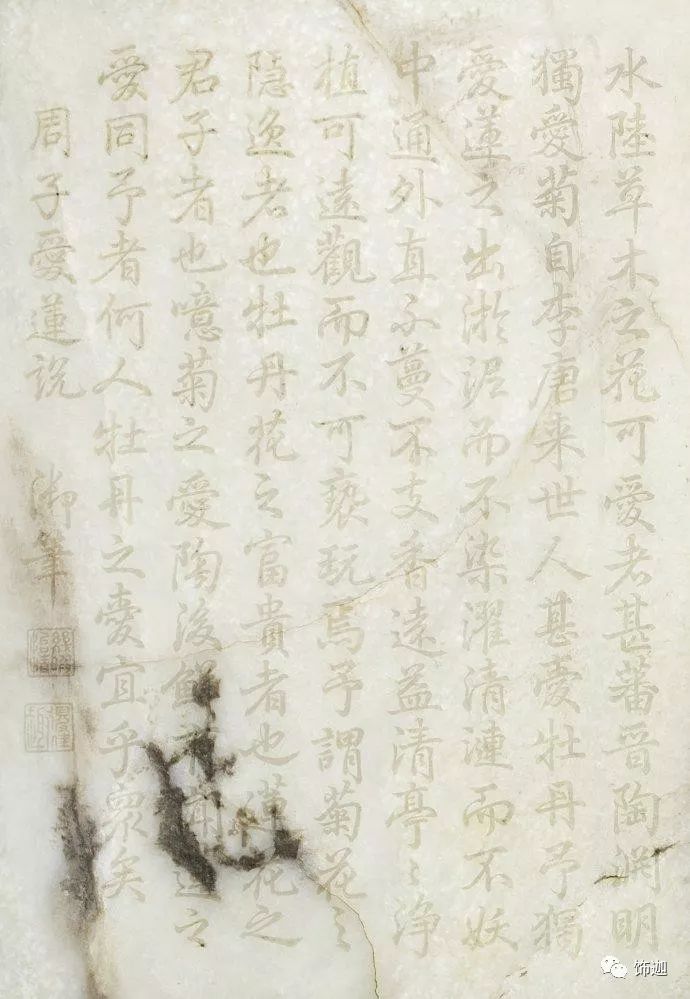 水陸草木之花可愛者甚蕃晉陶渊明
獨愛菊自李唐来世人甚愛牡丹予獨
愛蓮之出淤泥而不染濯清漣而不妖
中通外直不蔓不支香遠益清亭〻浄
植可遠觀而不可褻玩焉予謂菊花之
隐逸者也牡丹花之富貴者也蓮花之
君子者也噫菊之愛陶後鮮有聞蓮之
愛同予者何人牡丹之愛宜乎衆矣
周子愛蓮説 御筆
饰迦